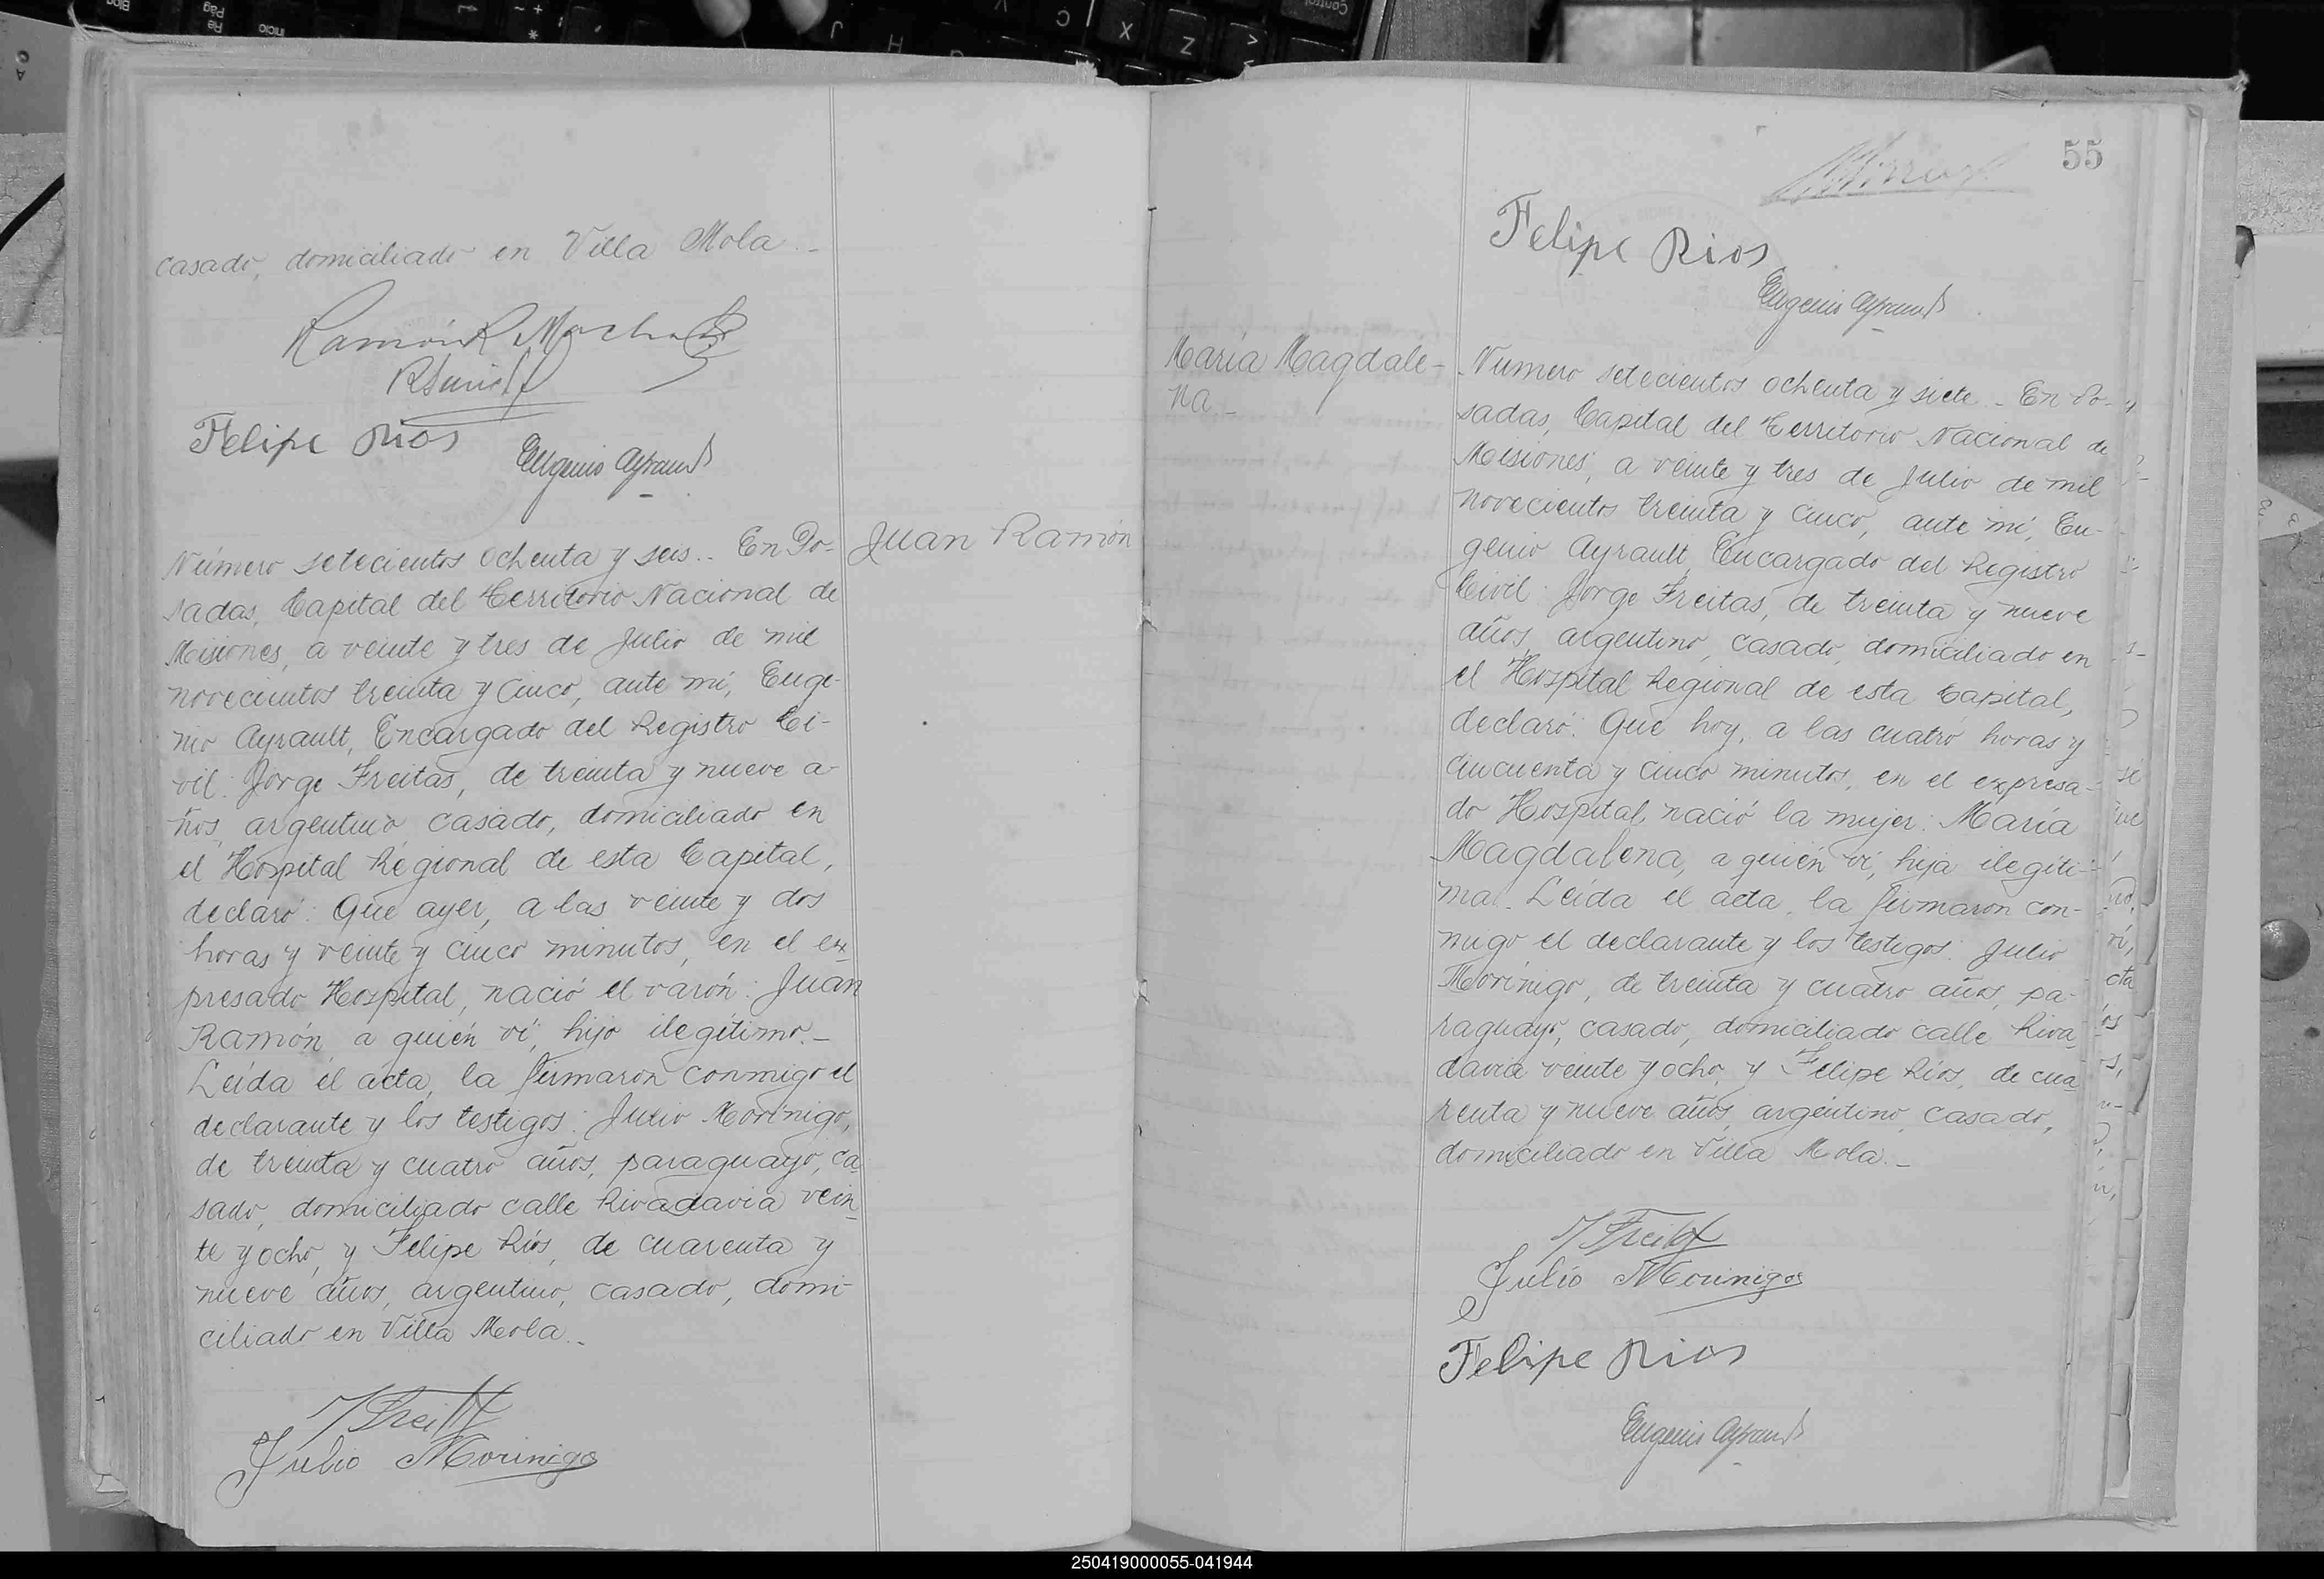 casado, domiciliado en Villa Mola.-
Felipe Rios
Eugenio Ayrault
Juan Ramón
Número setecientos ochenta y seis.. En Po-
sadas, Capital del Territorio Nacional de
Misiones, a veinte y tres de Julio de mil
novecientos treinta y cinco, ante mí, Euge-
nio Ayrault, Encargado del Registro Ci-
vil: Jorge Freitas, de treinta y nueve a-
ños, argentino, casado, domiciliado en
el Hospital Regional de esta Capital,
declaró: Que ayer, a las veinte y dos
horas y veinte y cinco minutos, en el ex
presado Hospital, nació el varón: Juan
Ramón, a quién ví, hijo ilegítimo.-
Leída el acta, la firmaron conmigo el
declarante y los testigos: Julio Morínigo,
de treinta y cuatro años, paraguayo, ca
sado, domiciliado calle Rivadavia vein
te y ocho, y Felipe Ríos, de cuarenta y
nueve años, argentino, casado, domi-
ciliado en Villa Mola.-
J Freitas
Julio Morinigo
55
Felipe Rios
Eugenio Ayrault
María Magdale-
na.-
Número setecientos ochenta y siete.- En Po-
sadas, Capital del Territorio Nacional de
Misiones, a veinte y tres de Julio de mil
novecientos treinta y cinco, ante mí, Eu-
genio Ayrault, Encargado del Registro
Civil: Jorge Freitas, de treinta y nueve
años, argentino, casado, domiciliado en
el Hospital Regional de esta Capital,
declaró: Que hoy, a las cuatro horas y
cincuenta y cinco minutos, en el expresa-
do Hospital, nació la mujer: María
Magdalena, a quién ví, hija ilegíti-
ma.- Leída el acta, la firmaron con-
migo el declarante y los testigos: Julio
Morínigo, de treinta y cuatro años, pa-
raguayo, casado, domiciliado calle Riva
davia veinte y ocho, y Felipe Ríos, de cua
renta y nueve años, argentino, casado,
domiciliado en Villa Mola.-
J Freitas
Julio Morinigo
Felipe Rios
Eugenio Ayrault
250419000055-041944